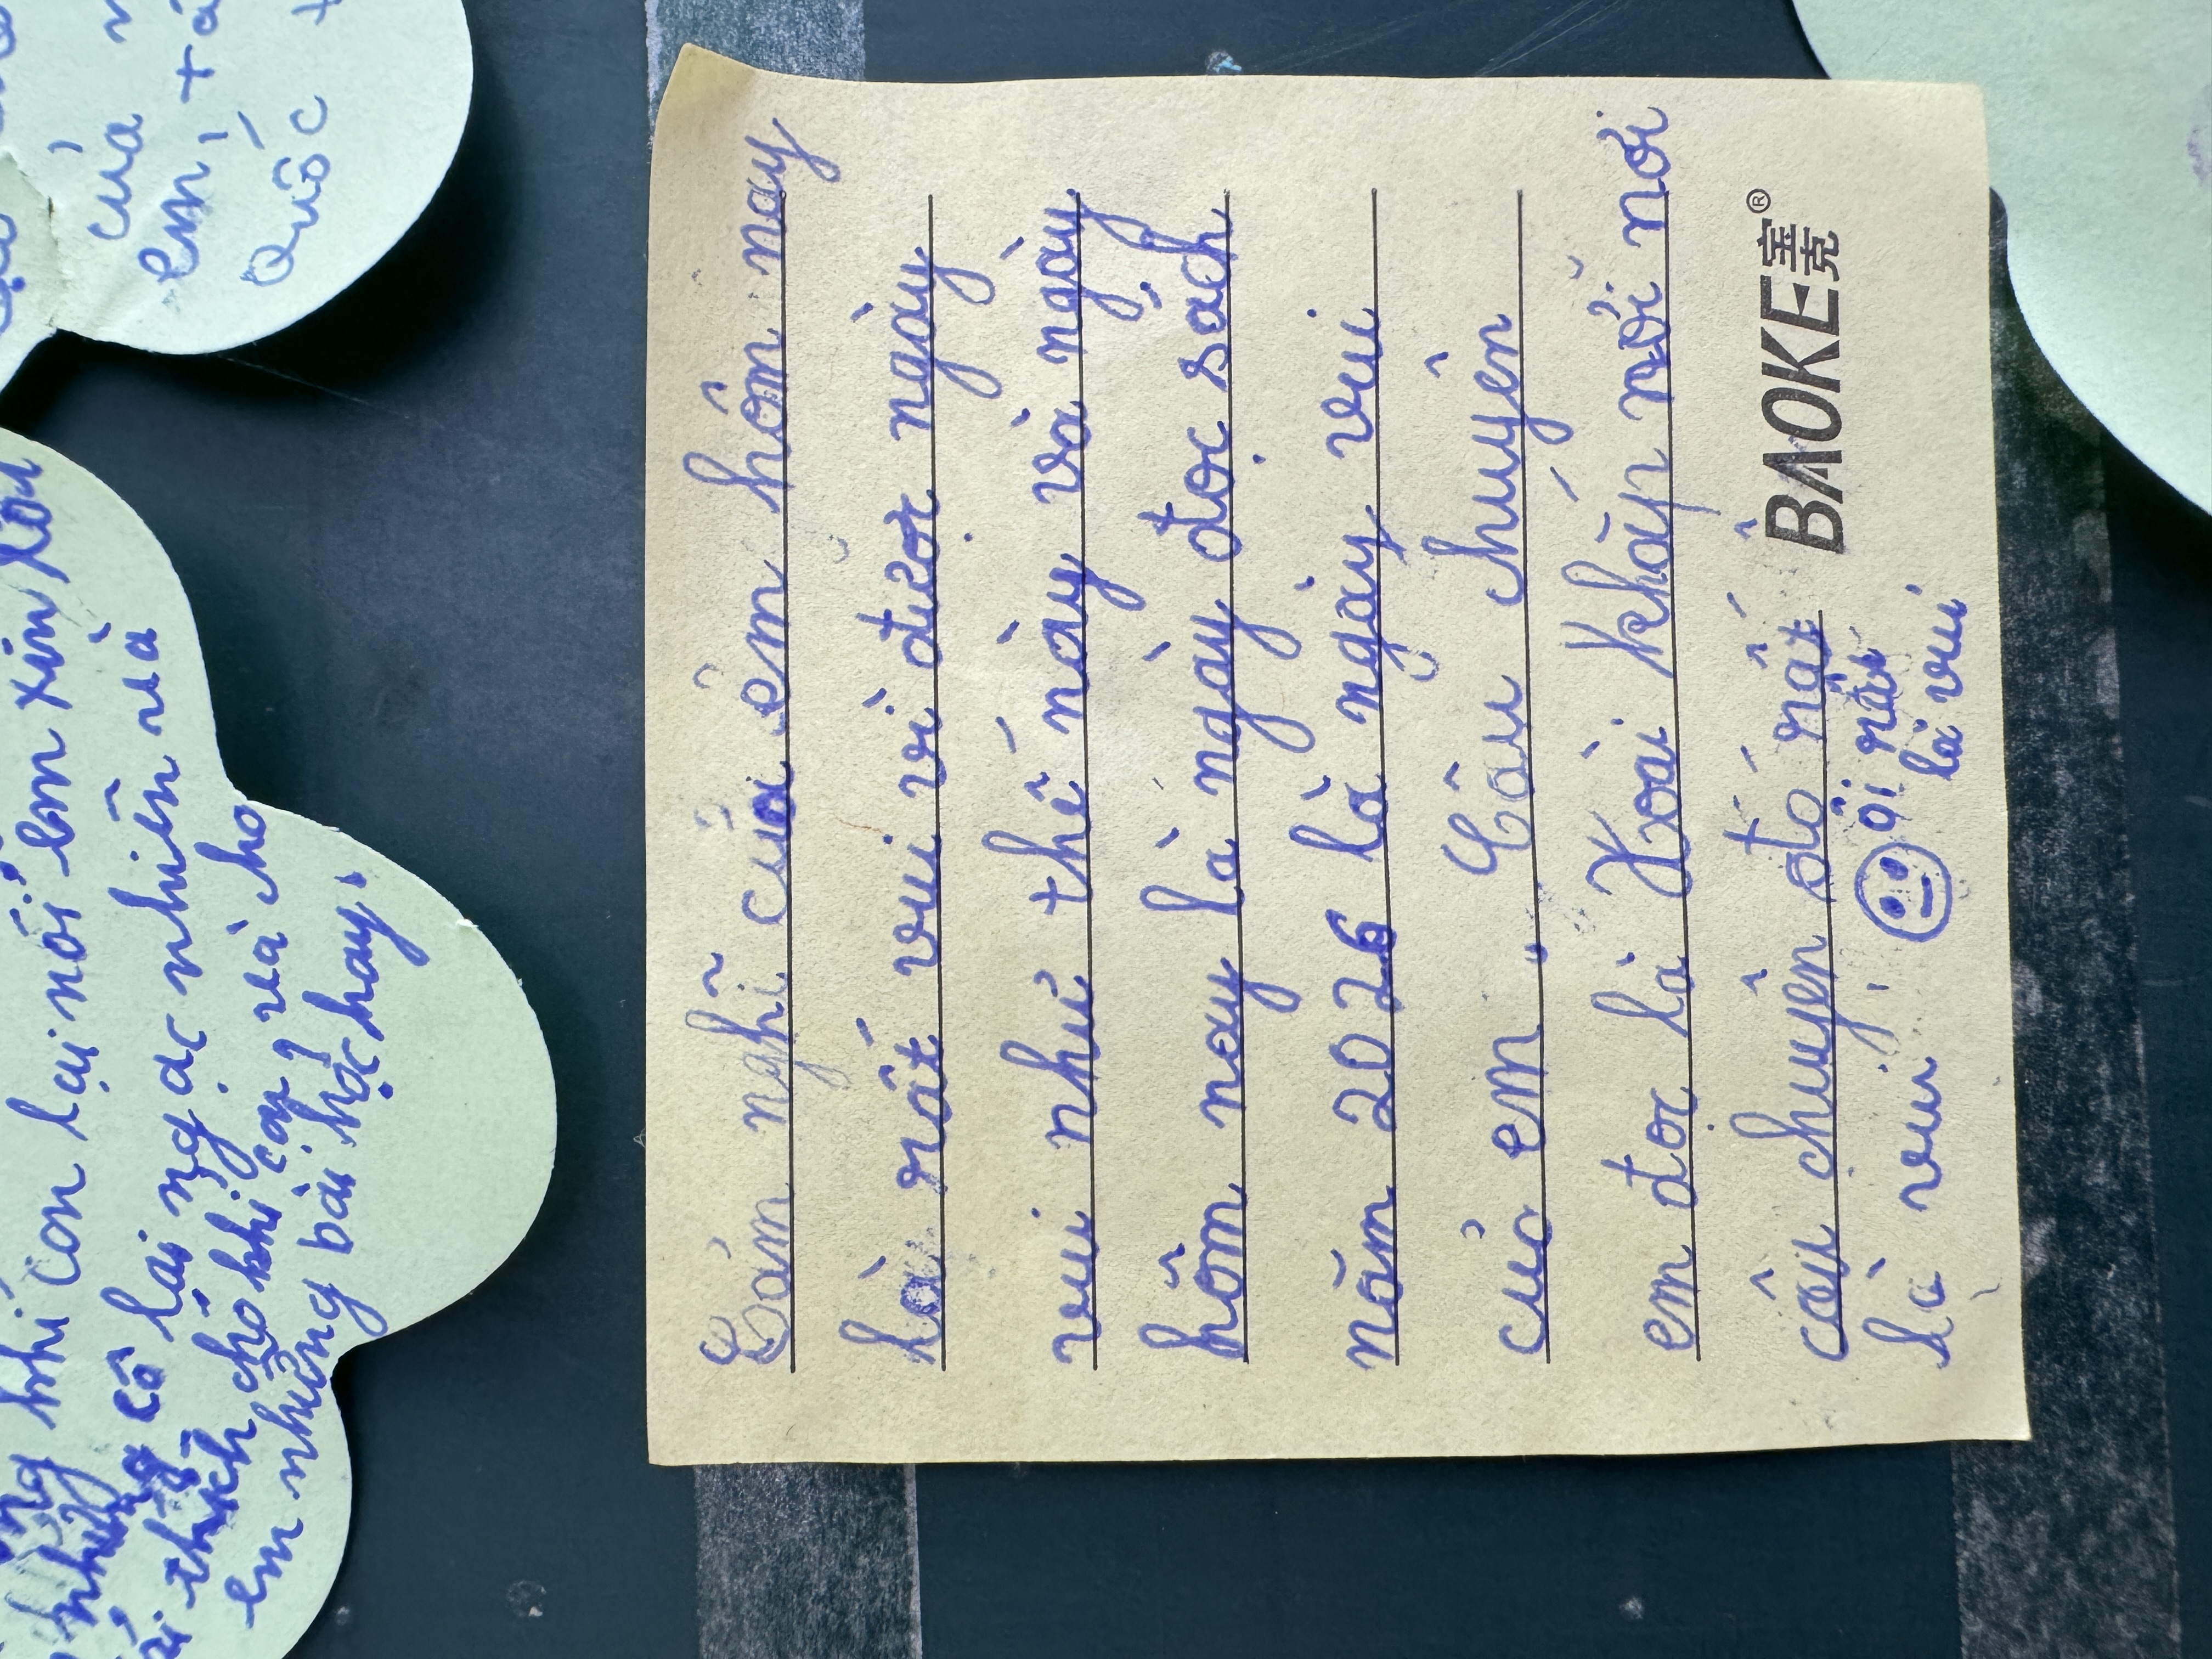 Cảm nghĩ của em hôm nay
là rất vui vì được ngày
vui như thế này và ngày
hôm nay là ngày đọc sách
năm 2026 là ngày vui
của em. Câu chuyện
em đọc là Xoài khắp nơi nơi
câu chuyện đó rất
là vui! ôi rất
là vui
BAOKE宝克®
của
em, t
Quốc
khi con lại nói em xin lỗi
những cô lại ngạc nhiên và
thích chó khi con và cho
em những bài học hay.